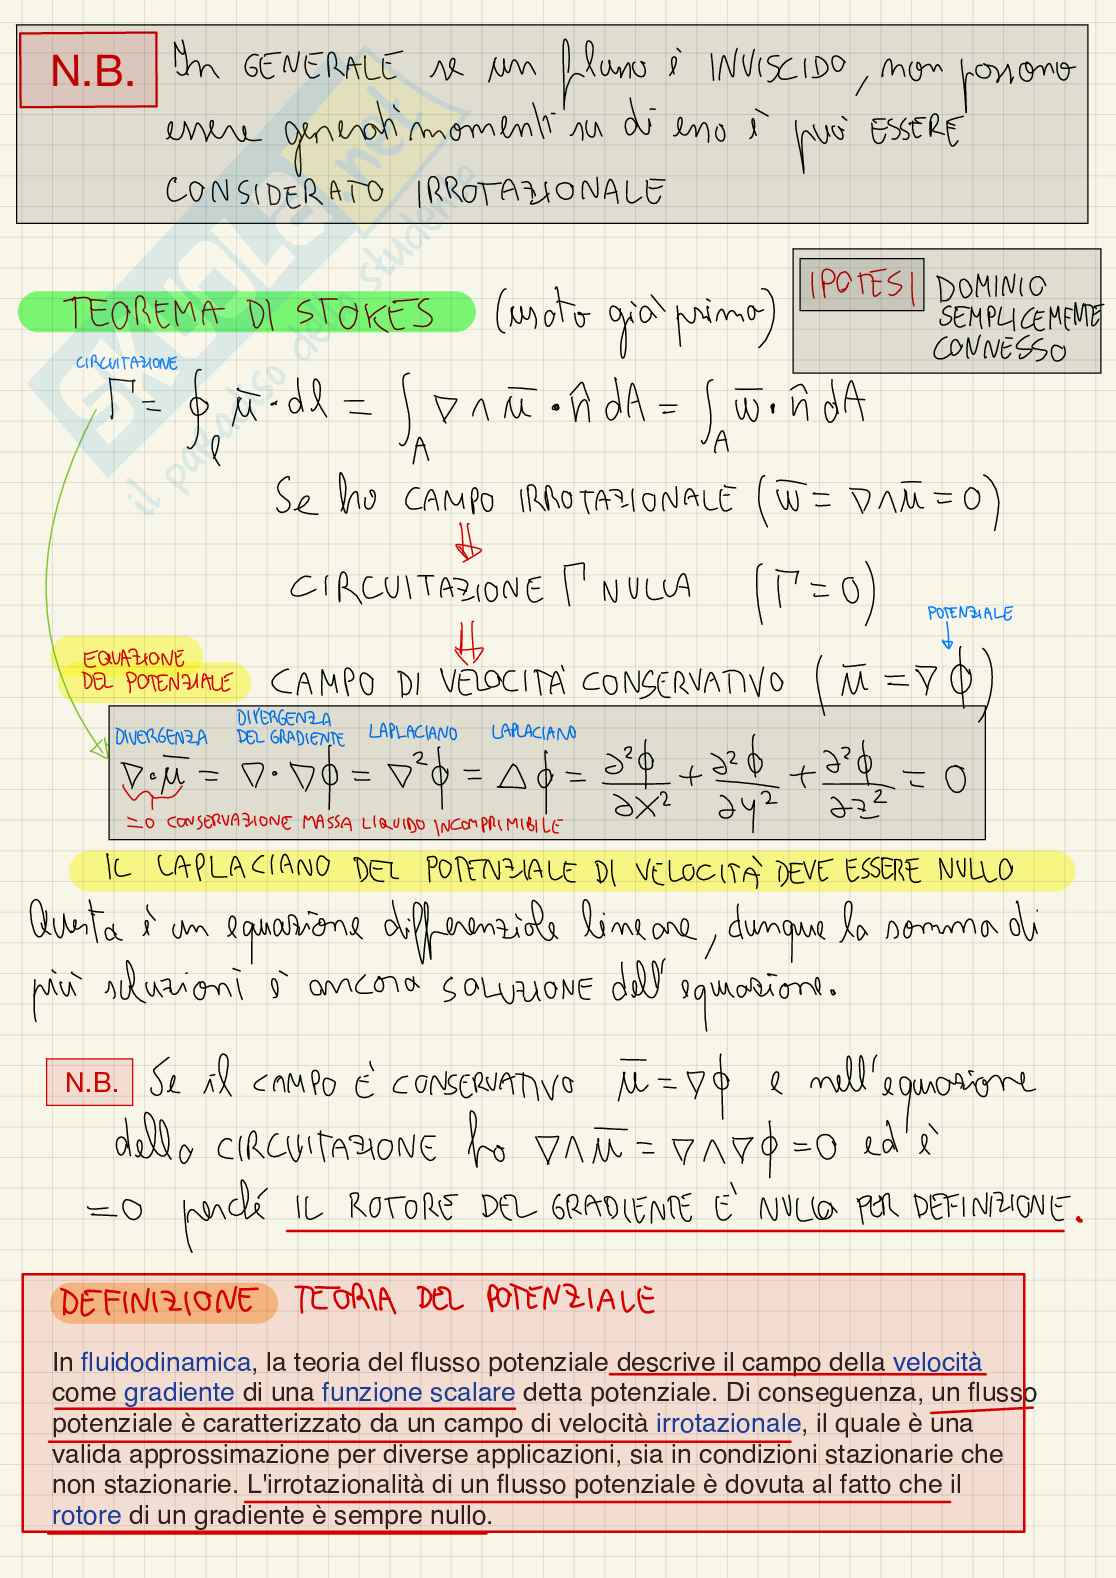 N.B. In GENERALE se un flusso è INVISCIDO, non possono
essere generati momenti su di esso è può ESSERE
CONSIDERATO IRROTAZIONALE
TEOREMA DI STOKES (usato già prima)
IPOTESI DOMINIO
SEMPLICEMENTE
CONNESSO
CIRCUITAZIONE
Γ = ∮_l ū · dl = ∫_A ∇ ∧ ū · n̂ dA = ∫_A w̄ · n̂ dA
Se ho CAMPO IRROTAZIONALE (w̄ = ∇∧ū = 0)
⇓
CIRCUITAZIONE Γ NULLA (Γ = 0)
⇓
POTENZIALE
↓
EQUAZIONE
DEL POTENZIALE
CAMPO DI VELOCITÀ CONSERVATIVO (ū = ∇ϕ)
DIVERGENZA DIVERGENZA DEL GRADIENTE LAPLACIANO LAPLACIANO
∇·ū = ∇·∇ϕ = ∇²ϕ = Δϕ = ∂²ϕ/∂x² + ∂²ϕ/∂y² + ∂²ϕ/∂z² = 0
=0 CONSERVAZIONE MASSA LIQUIDO INCOMPRIMIBILE
IL LAPLACIANO DEL POTENZIALE DI VELOCITÀ DEVE ESSERE NULLO
Questa è un equazione differenziale lineare, dunque la somma di
più soluzioni è ancora SOLUZIONE dell'equazione.
N.B. Se il CAMPO È CONSERVATIVO ū = ∇ϕ e nell'equazione
della CIRCUITAZIONE ho ∇∧ū = ∇∧∇ϕ = 0 ed è
=0 perché IL ROTORE DEL GRADIENTE È NULLO PER DEFINIZIONE.
DEFINIZIONE TEORIA DEL POTENZIALE
In fluidodinamica, la teoria del flusso potenziale descrive il campo della velocità
come gradiente di una funzione scalare detta potenziale. Di conseguenza, un flusso
potenziale è caratterizzato da un campo di velocità irrotazionale, il quale è una
valida approssimazione per diverse applicazioni, sia in condizioni stazionarie che
non stazionarie. L'irrotazionalità di un flusso potenziale è dovuta al fatto che il
rotore di un gradiente è sempre nullo.
SKUOLA.net
il paradiso dello studente